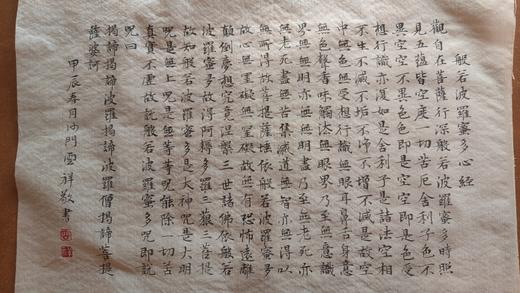 般若波羅蜜多心經
觀自在菩薩行深般若波羅蜜多時照
見五蘊皆空度一切苦厄舍利子色不
異空空不異色色即是空空即是色受
想行識亦復如是舍利子是諸法空相
不生不滅不垢不淨不增不減是故空
中無色無受想行識無眼耳鼻舌身意
無色聲香味觸法無眼界乃至無意識
界無無明亦無無明盡乃至無老死亦
無老死盡無苦集滅道無智亦無得以
無所得故菩提薩埵依般若波羅蜜多
故心無罣礙無罣礙故無有恐怖遠離
顛倒夢想究竟涅槃三世諸佛依般若
波羅蜜多故得阿耨多羅三藐三菩提
故知般若波羅蜜多是大神咒是大明
咒是無上咒是無等等咒能除一切苦
真實不虛故說般若波羅蜜多咒即說
咒曰
揭諦揭諦波羅揭諦波羅僧揭諦菩提
薩婆訶
甲辰春月沙門雲祥敬書